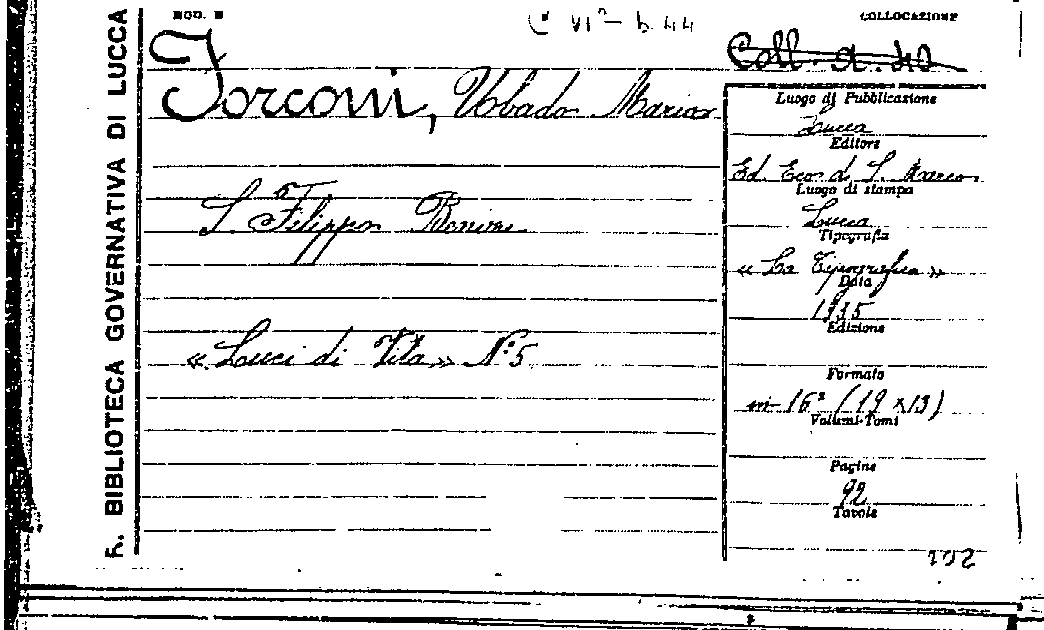 MOD. B
C VI² - b. 44
COLLOCAZIONE
Coll. a. 40
R. BIBLIOTECA GOVERNATIVA DI LUCCA
Torconi, Ubaldo Mario
S. Filippo Benizi
«Luci di Vita» N.° 5
Luogo di Pubblicazione
Lucca
Editore
Ed. Eco d. S. Marco
Luogo di stampa
Lucca
Tipografia
«La Tipografica»
Data
1935
Edizione
Formato
in-16° (19 x 13)
Volumi-Tomi
Pagine
92
Tavole